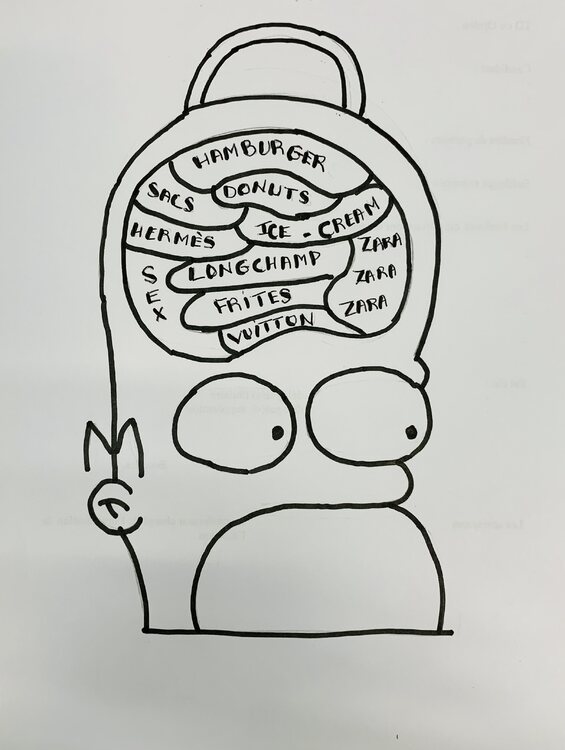 HAMBURGER
DONUTS
SACS
ICE - CREAM
HERMÈS
ZARA
ZARA
ZARA
LONGCHAMP
SEX
FRITES
VUITTON